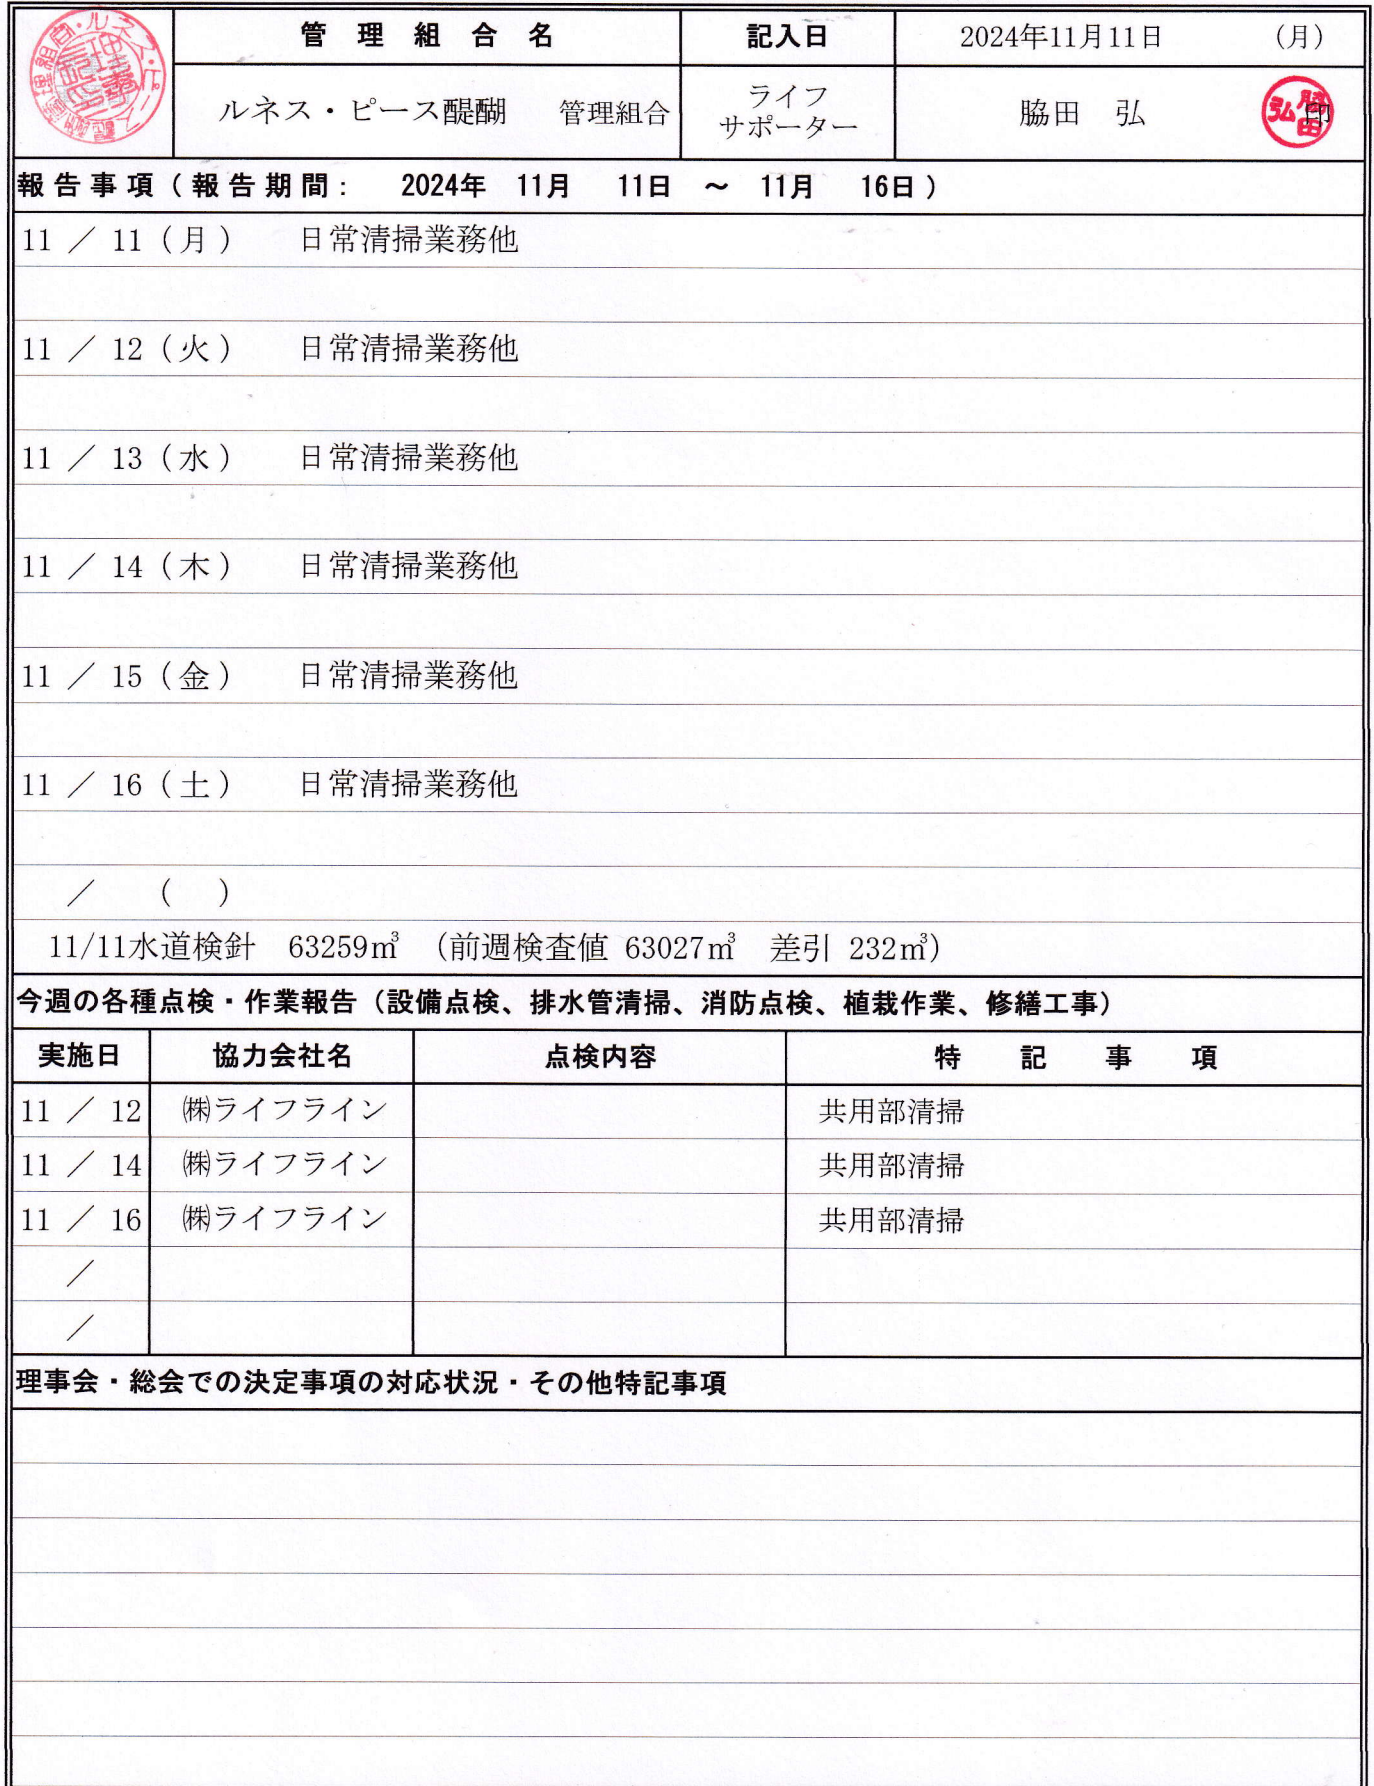 管理組合名 記入日 2024年11月11日 (月)
ルネス・ピース醍醐 管理組合 ライフサポーター 脇田 弘 印
脇田弘
報告事項(報告期間: 2024年 11月 11日 ～ 11月 16日)
11 ／ 11 (月) 日常清掃業務他
11 ／ 12 (火) 日常清掃業務他
11 ／ 13 (水) 日常清掃業務他
11 ／ 14 (木) 日常清掃業務他
11 ／ 15 (金) 日常清掃業務他
11 ／ 16 (土) 日常清掃業務他
／ ( )
11/11水道検針 63259㎥ (前週検査値 63027㎥ 差引 232㎥)
今週の各種点検・作業報告(設備点検、排水管清掃、消防点検、植栽作業、修繕工事)
実施日 協力会社名 点検内容 特記事項
11 ／ 12 ㈱ライフライン 共用部清掃
11 ／ 14 ㈱ライフライン 共用部清掃
11 ／ 16 ㈱ライフライン 共用部清掃
／
／
理事会・総会での決定事項の対応状況・その他特記事項